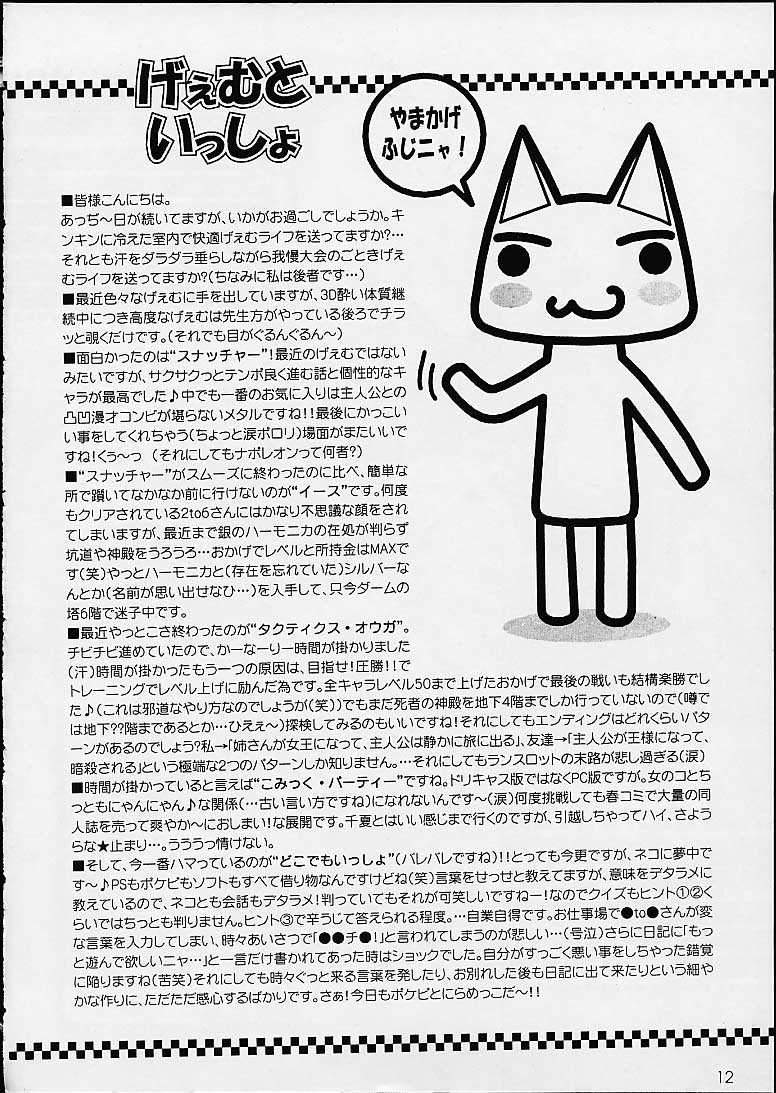 げぇむと
いっしょ
やまかげ
ふじニャ！
■皆様こんにちは。
あっぢ～日が続いてますが、いかがお過ごしでしょうか。キ
ンキンに冷えた室内で快適げぇむライフを送ってますか?…
それとも汗をダラダラ垂らしながら我慢大会のごときげぇ
むライフを送ってますか?(ちなみに私は後者です…)
■最近色々なげぇむに手を出していますが、3D酔い体質継
続中につき高度なげぇむは先生方がやっている後ろでチラ
ッと覗くだけです。(それでも目がぐるんぐるん～)
■面白かったのは“スナッチャー”!最近のげぇむではない
みたいですが、サクサクっとテンポ良く進む話と個性的なキ
ャラが最高でした♪中でも一番のお気に入りは主人公との
凸凹漫才コンビが堪らないメタルですね!!最後にかっこい
い事をしてくれちゃう(ちょっと涙ポロリ)場面がまたいいで
すね!くぅ～っ　(それにしてもナポレオンって何者?)
■“スナッチャー”がスムーズに終わったのに比べ、簡単な
所で躓いてなかなか前に行けないのが“イース”です。何度
もクリアされている2to6さんにはかなり不思議な顔をされ
てしまいますが、最近まで銀のハーモニカの在処が判らず
坑道や神殿をうろうろ…おかげでレベルと所持金はMAXで
す(笑)やっとハーモニカと(存在を忘れていた)シルバーな
んとか(名前が思い出せなひ…)を入手して、只今ダームの
塔6階で迷子中です。
■最近やっとこさ終わったのが“タクティクス・オウガ”。
チビチビ進めていたので、かーなーりー時間が掛かりました
(汗)時間が掛かったもう一つの原因は、目指せ!圧勝!!で
トレーニングでレベル上げに励んだ為です。全キャラレベル50まで上げたおかげで最後の戦いも結構楽勝でし
た♪(これは邪道なやり方なのでしょうが(笑))でもまだ死者の神殿を地下4階までしか行っていないので(噂で
は地下??階まであるとか…ひえぇ～)探検してみるのもいいですね!それにしてもエンディングはどれくらいパタ
ーンがあるのでしょう?私→「姉さんが女王になって、主人公は静かに旅に出る」、友達→「主人公が王様になって、
暗殺される」という極端な2つのパターンしか知りません。…それにしてもランスロットの末路が悲し過ぎる(涙)
■時間が掛かっていると言えば“こみっく・パーティー”ですね。ドリキャス版ではなくPC版ですが。女のコとちっ
ともにゃんにゃん♪な関係(…古い言い方ですね)になれないんです～(涙)何度挑戦しても春コミで大量の同
人誌を売って爽やか～におしまい!な展開です。千夏とはいい感じまで行くのですが、引越しちゃってハイ、さよう
らな★止まり…。うううっ情けない。
■そして、今一番ハマっているのが“どこでもいっしょ”(バレバレですね)!!とっても今更ですが、ネコに夢中で
す～♪PSもポケピもソフトもすべて借り物なんですけどね(笑)言葉をせっせと教えてますが、意味をデタラメに
教えているので、ネコとも会話もデタラメ!判っていてもそれが可笑しいですねー!なのでクイズもヒント①②く
らいではちっとも判りません。ヒント③で辛うじて答えられる程度。…自業自得です。お仕事場で●to●さんが変
な言葉を入力してしまい、時々あいさつで「●●チ●!」と言われてしまうのが悲しい…(号泣)さらに日記に「もっ
と遊んで欲しいニャ…」と一言だけ書かれてあった時はショックでした。自分がすっごく悪い事をしちゃった錯覚
に陥りますね(苦笑)それにしても時々ぐっと来る言葉を発したり、お別れした後も日記に出て来たりという細や
かな作りに、ただただ感心するばかりです。さぁ!今日もポケピとにらめっこだ～!!
12